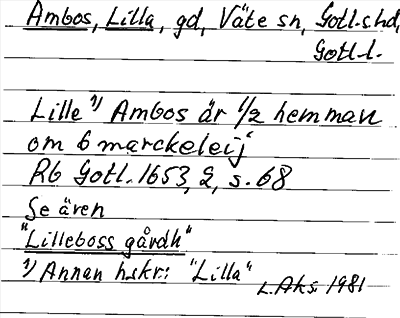 Ambos, Lilla, gd, Väte sn, Gotl.s hd,
Gotl. l.
Lille 1) Ambos är 1/2 hemman
om 6 marckeleij"
Rb Gotl. 1653, 2, s. 68
Se även
"Lilleboss gårdh"
1) Annan hskr: "Lilla"
L. Aks. 1981